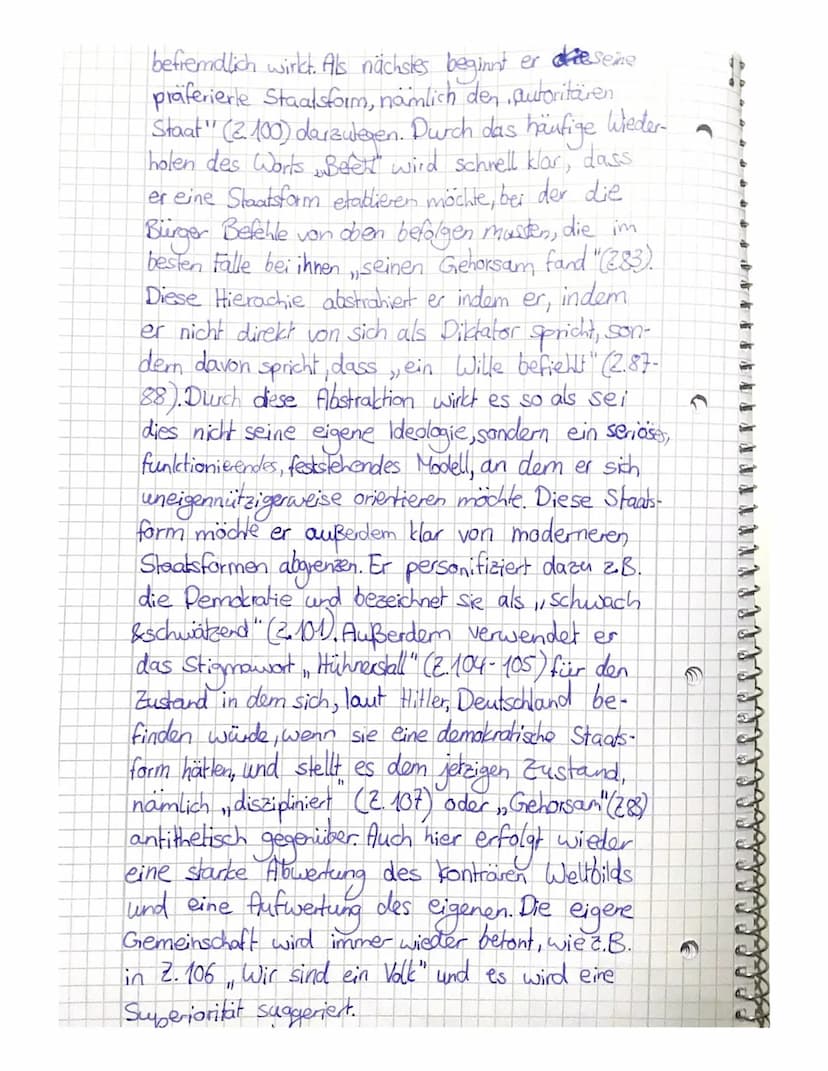 befremdlich wirkt. Als nächstes beginnt er seine
präferierte Staatsform, nämlich den „autoritären
Staat" (Z.100) darzulegen. Durch das häufige Wieder-
holen des Worts „Befehl" wird schnell klar, dass
er eine Staatsform etablieren möchte, bei der die
Bürger Befehle von oben befolgen müssten, die im
besten Falle bei ihnen „seinen Gehorsam fand" (Z.83).
Diese Hierachie abstrahiert er indem er, indem
er nicht direkt von sich als Diktator spricht, son-
dern davon spricht, dass „ein Wille befiehlt" (Z.87-
88). Durch diese Abstraktion wirkt es so als sei
dies nicht seine eigene Ideologie, sondern ein seriöses,
funktionierendes, feststehendes Modell, an dem er sich
uneigennützigerweise orientieren möchte. Diese Staats-
form möchte er außerdem klar von moderneren
Staatsformen abgrenzen. Er personifiziert dazu z.B.
die Demokratie und bezeichnet sie als „schwach
& schwätzend" (Z.101). Außerdem verwendet er
das Stigmawort „Hühnerstall" (Z.104-105) für den
Zustand in dem sich, laut Hitler, Deutschland be-
finden würde, wenn sie eine demokratische Staats-
form hätten, und stellt es dem jetzigen Zustand,
nämlich „diszipliniert" (Z.107) oder „Gehorsam" (Z.88)
antithetisch gegenüber. Auch hier erfolgt wieder
eine starke Abwertung des konträren Weltbilds
und eine Aufwertung des eigenen. Die eigene
Gemeinschaft wird immer wieder betont, wie z.B.
in Z.106 „Wir sind ein Volk" und es wird eine
Superiorität suggeriert.